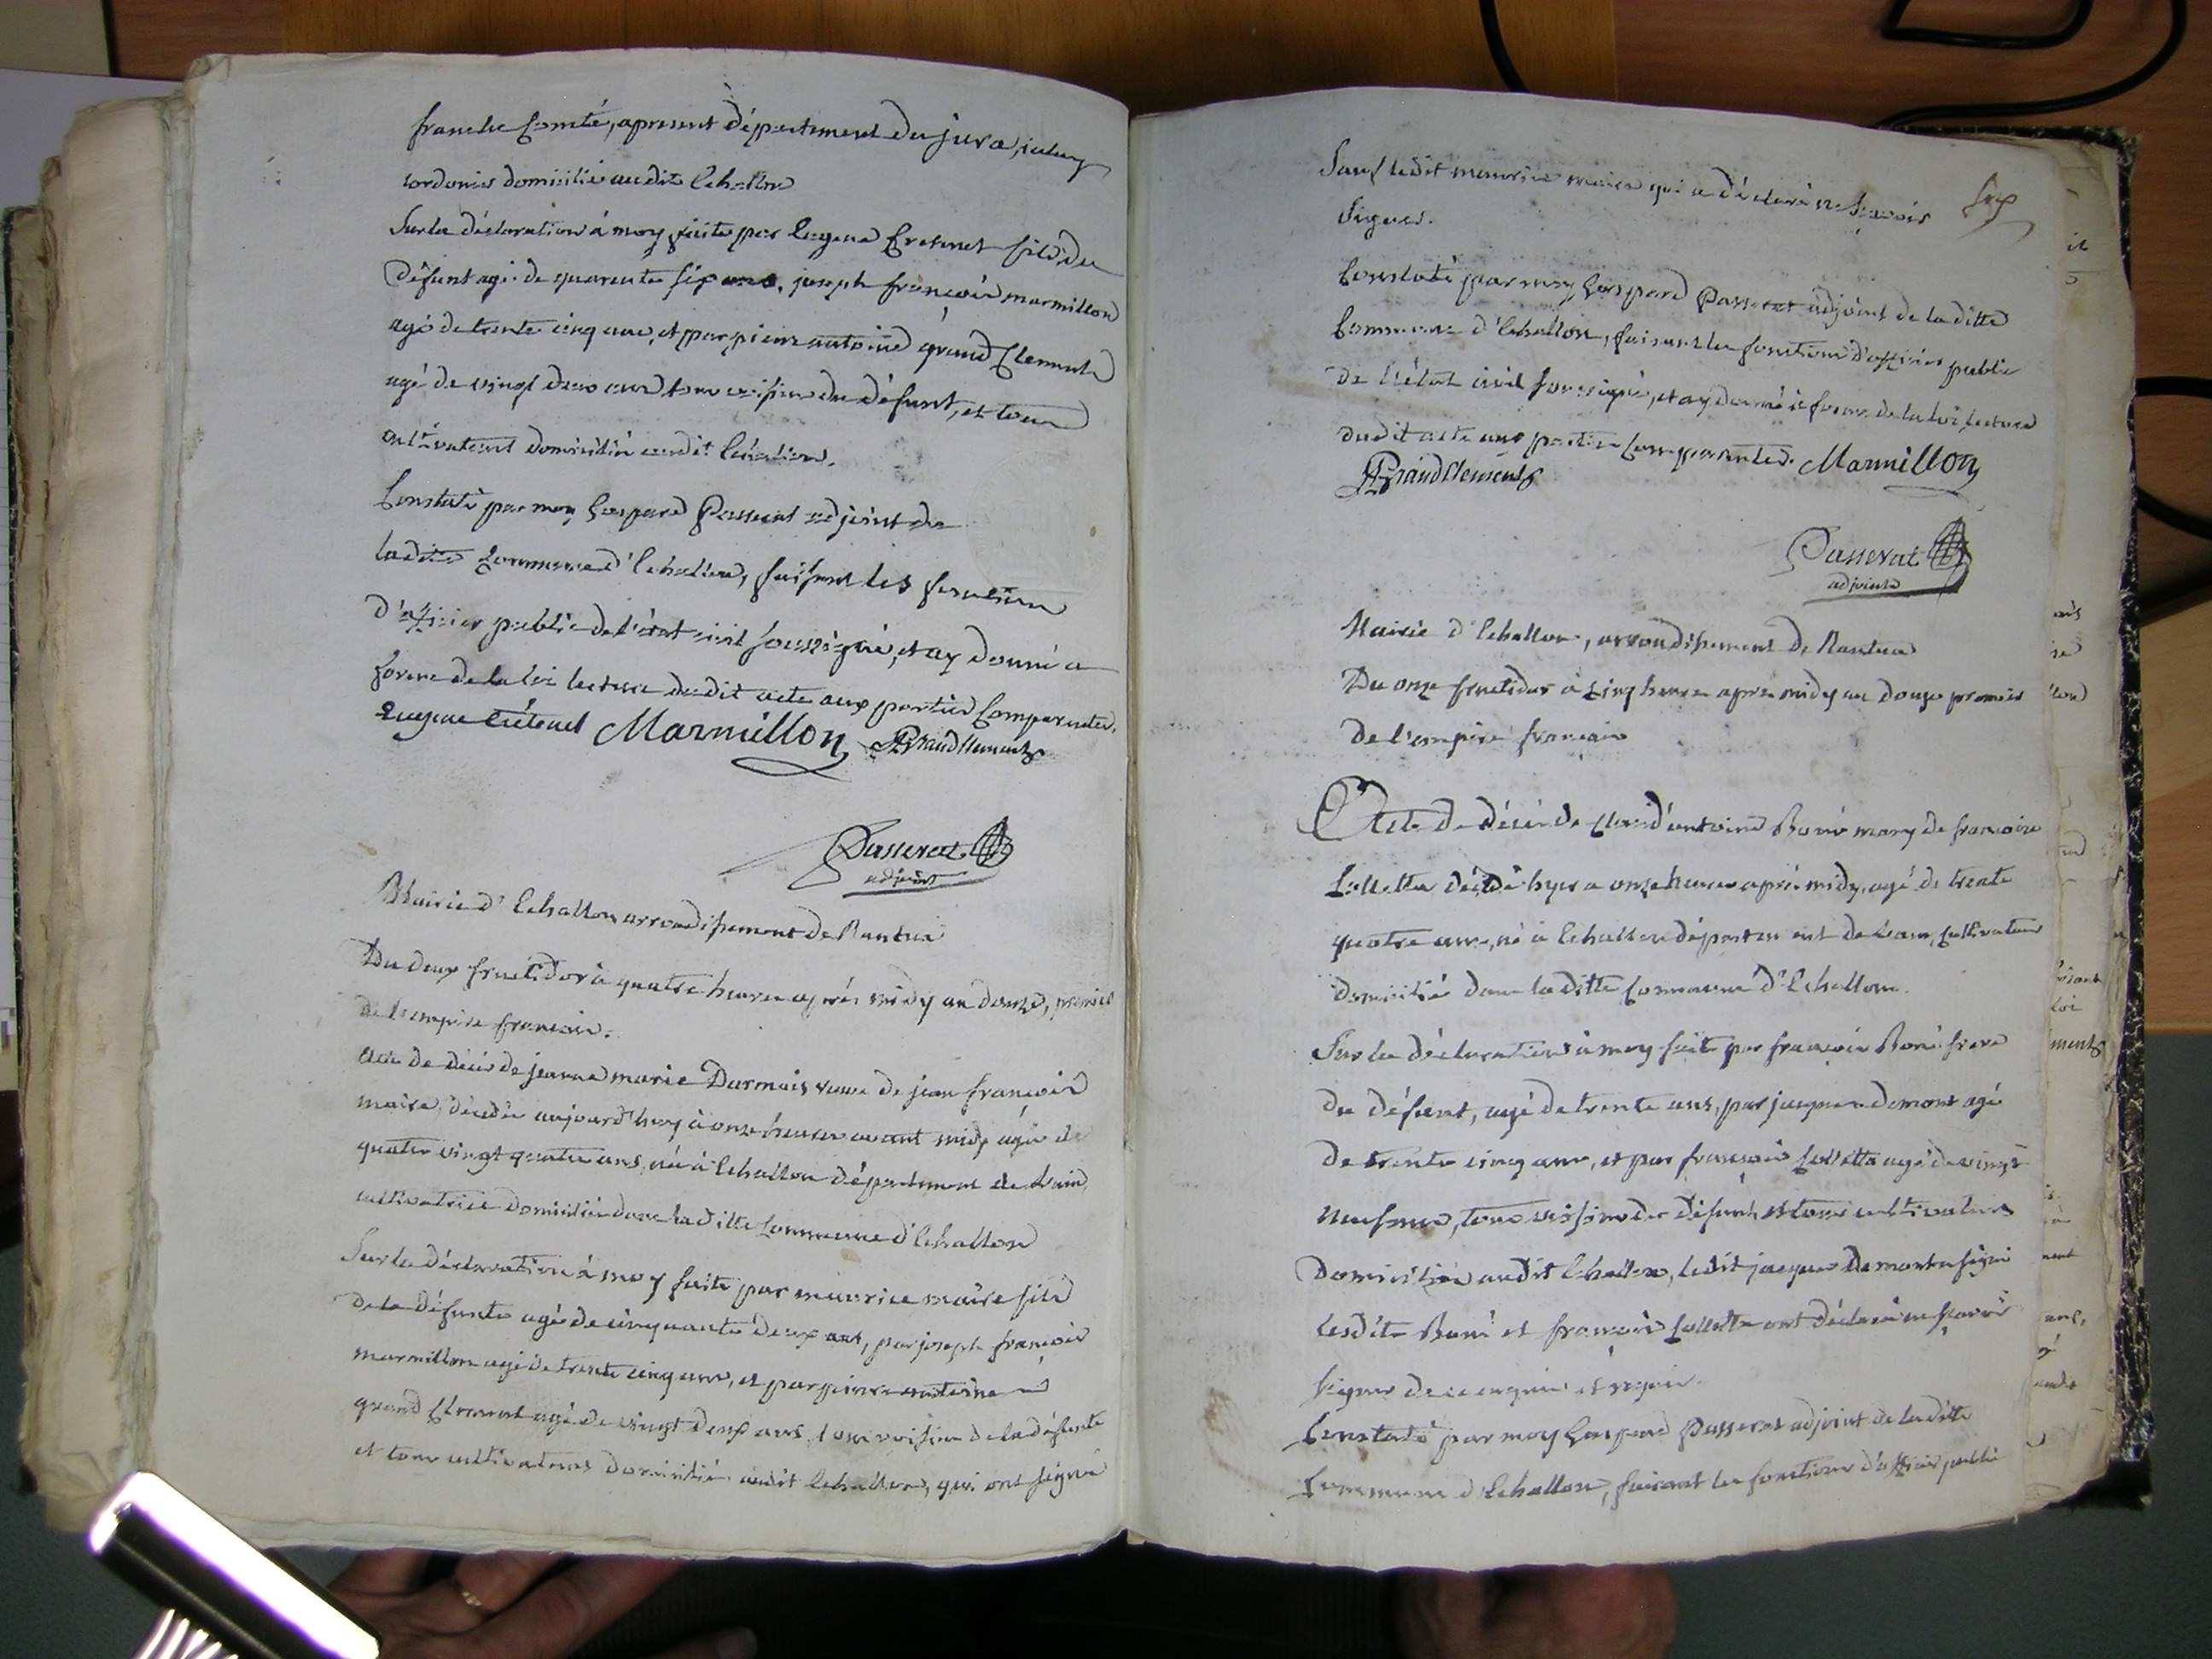 franche Comté, apresent département du jura, iceluy
cordonier domicilié audit Echallon
Sur la déclaration á moy faite par Eugene Cretenet fils du
défunt agé de quarente six ans, joseph françois marmillon
agé de trente cinq ans, et par pierre antoine grand Clement
agé de vingt deux ans tous voisins du défunt, et tous
cultivateurs domiciliés audit Echallon.
Constaté par moy Gaspard Passerat adjoint de
ladite Commune d'Echallon, faisant les fonctions
d'officier public de l'état civil soussigné, et ay donné a
forme de la loi lecture dudit acte aux parties Comparentes.
Eugene Crétenet Marmillon Grandclements
Passerat
adjoint
Mairie d'Echallon arrondissement de Nantua
Du deux fructidor à quatre heures après midy an douze, premier
de l'empire francais.
Acte de décés de jeanne marie Durmois veuve de jean françois
maire, décédée aujourd'huy à onze heures avant midy agée de
quatre vingt quatre ans, née à Echallon département de l'ain,
cultivatrice domiciliée dans la ditte Commune d'Echallon
Sur la déclaration á moy faite par maurice maire fils
de la défunte agé de cinquante deux ans, par joseph françois
marmillon agé de trente cinq ans, et par pierre antoine
grand Clement agé de vingt deux ans, tous voisins de la défunte
et tous cultivateurs domiciliés audit Echallon, qui ont signé
Sauf ledit maurice maire qui a déclaré ne sçavoir
signer.
Constaté par moy Gaspard Passerat adjoint de la ditte
Commune d'Echallon, faisant les fonctions d'officier public
de l'état civil soussigné, et ay donné à forme de la loi lecture
dudit acte aux parties Comparentes. Marmillon
Grandclements
Passerat
adjoint
Mairie d'Echallon, arrondissement de Nantua
Du onze fructidor à cinq heures après midy an douze premier
de l'empire francais
Acte de décés de Claud'antoine Boné mary de francoise
Colletta décédé hyer a onze heures après midy, agé de trente
quatre ans, né à Echallon département de l'ain, Cultivateur
domicilié dans la ditte Commune d'Echallon.
Sur la déclaration à moy faite par françois Boné frere
du défunt, agé de trente ans, par jacques demont agé
de trente cinq ans, et par françois Colletta agé de vingt
neuf ans, tous voisins du défunt et tous cultivateurs
domiciliés audit Echallon, ledit jacques Demont a signé
lesdits Boné et françois Colletta ont déclaré ne sçavoir
signer de ce enquis et requis.
Constaté par moy Gaspard Passerat adjoint de ladite
Commune d'Echallon, faisant les fonctions d'officier public